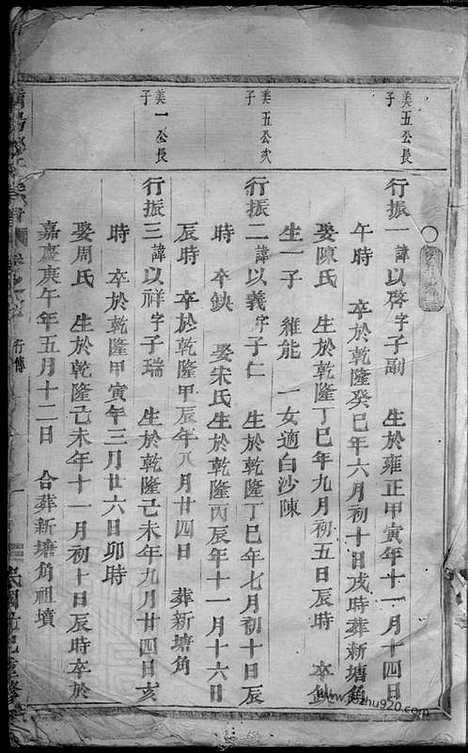 美五公長子
行振一諱以啓字子副 生於雍正甲寅年十一月十四日
午時 卒於乾隆癸巳年六月初十日戌時葬新塘角
娶陳氏 生於乾隆丁巳年九月初五日辰時 卒缺
生一子 維能 一女適白沙陳
美五公弍子
行振二諱以義字子仁 生於乾隆丁巳年七月初十日辰
時 卒缺 娶宋氏生於乾隆丙辰年十一月十六日
辰時 卒於乾隆甲辰年八月廿四日 葬新塘角
美一公長子
行振三諱以祥字子瑞 生於乾隆己未年九月廿四日亥
時 卒於乾隆甲寅年三月廿六日卯時
娶周氏 生於乾隆己未年十一月初十日辰時卒於
嘉慶庚午年五月十二日 合葬新塘角祖墳
行傳
民國
重修